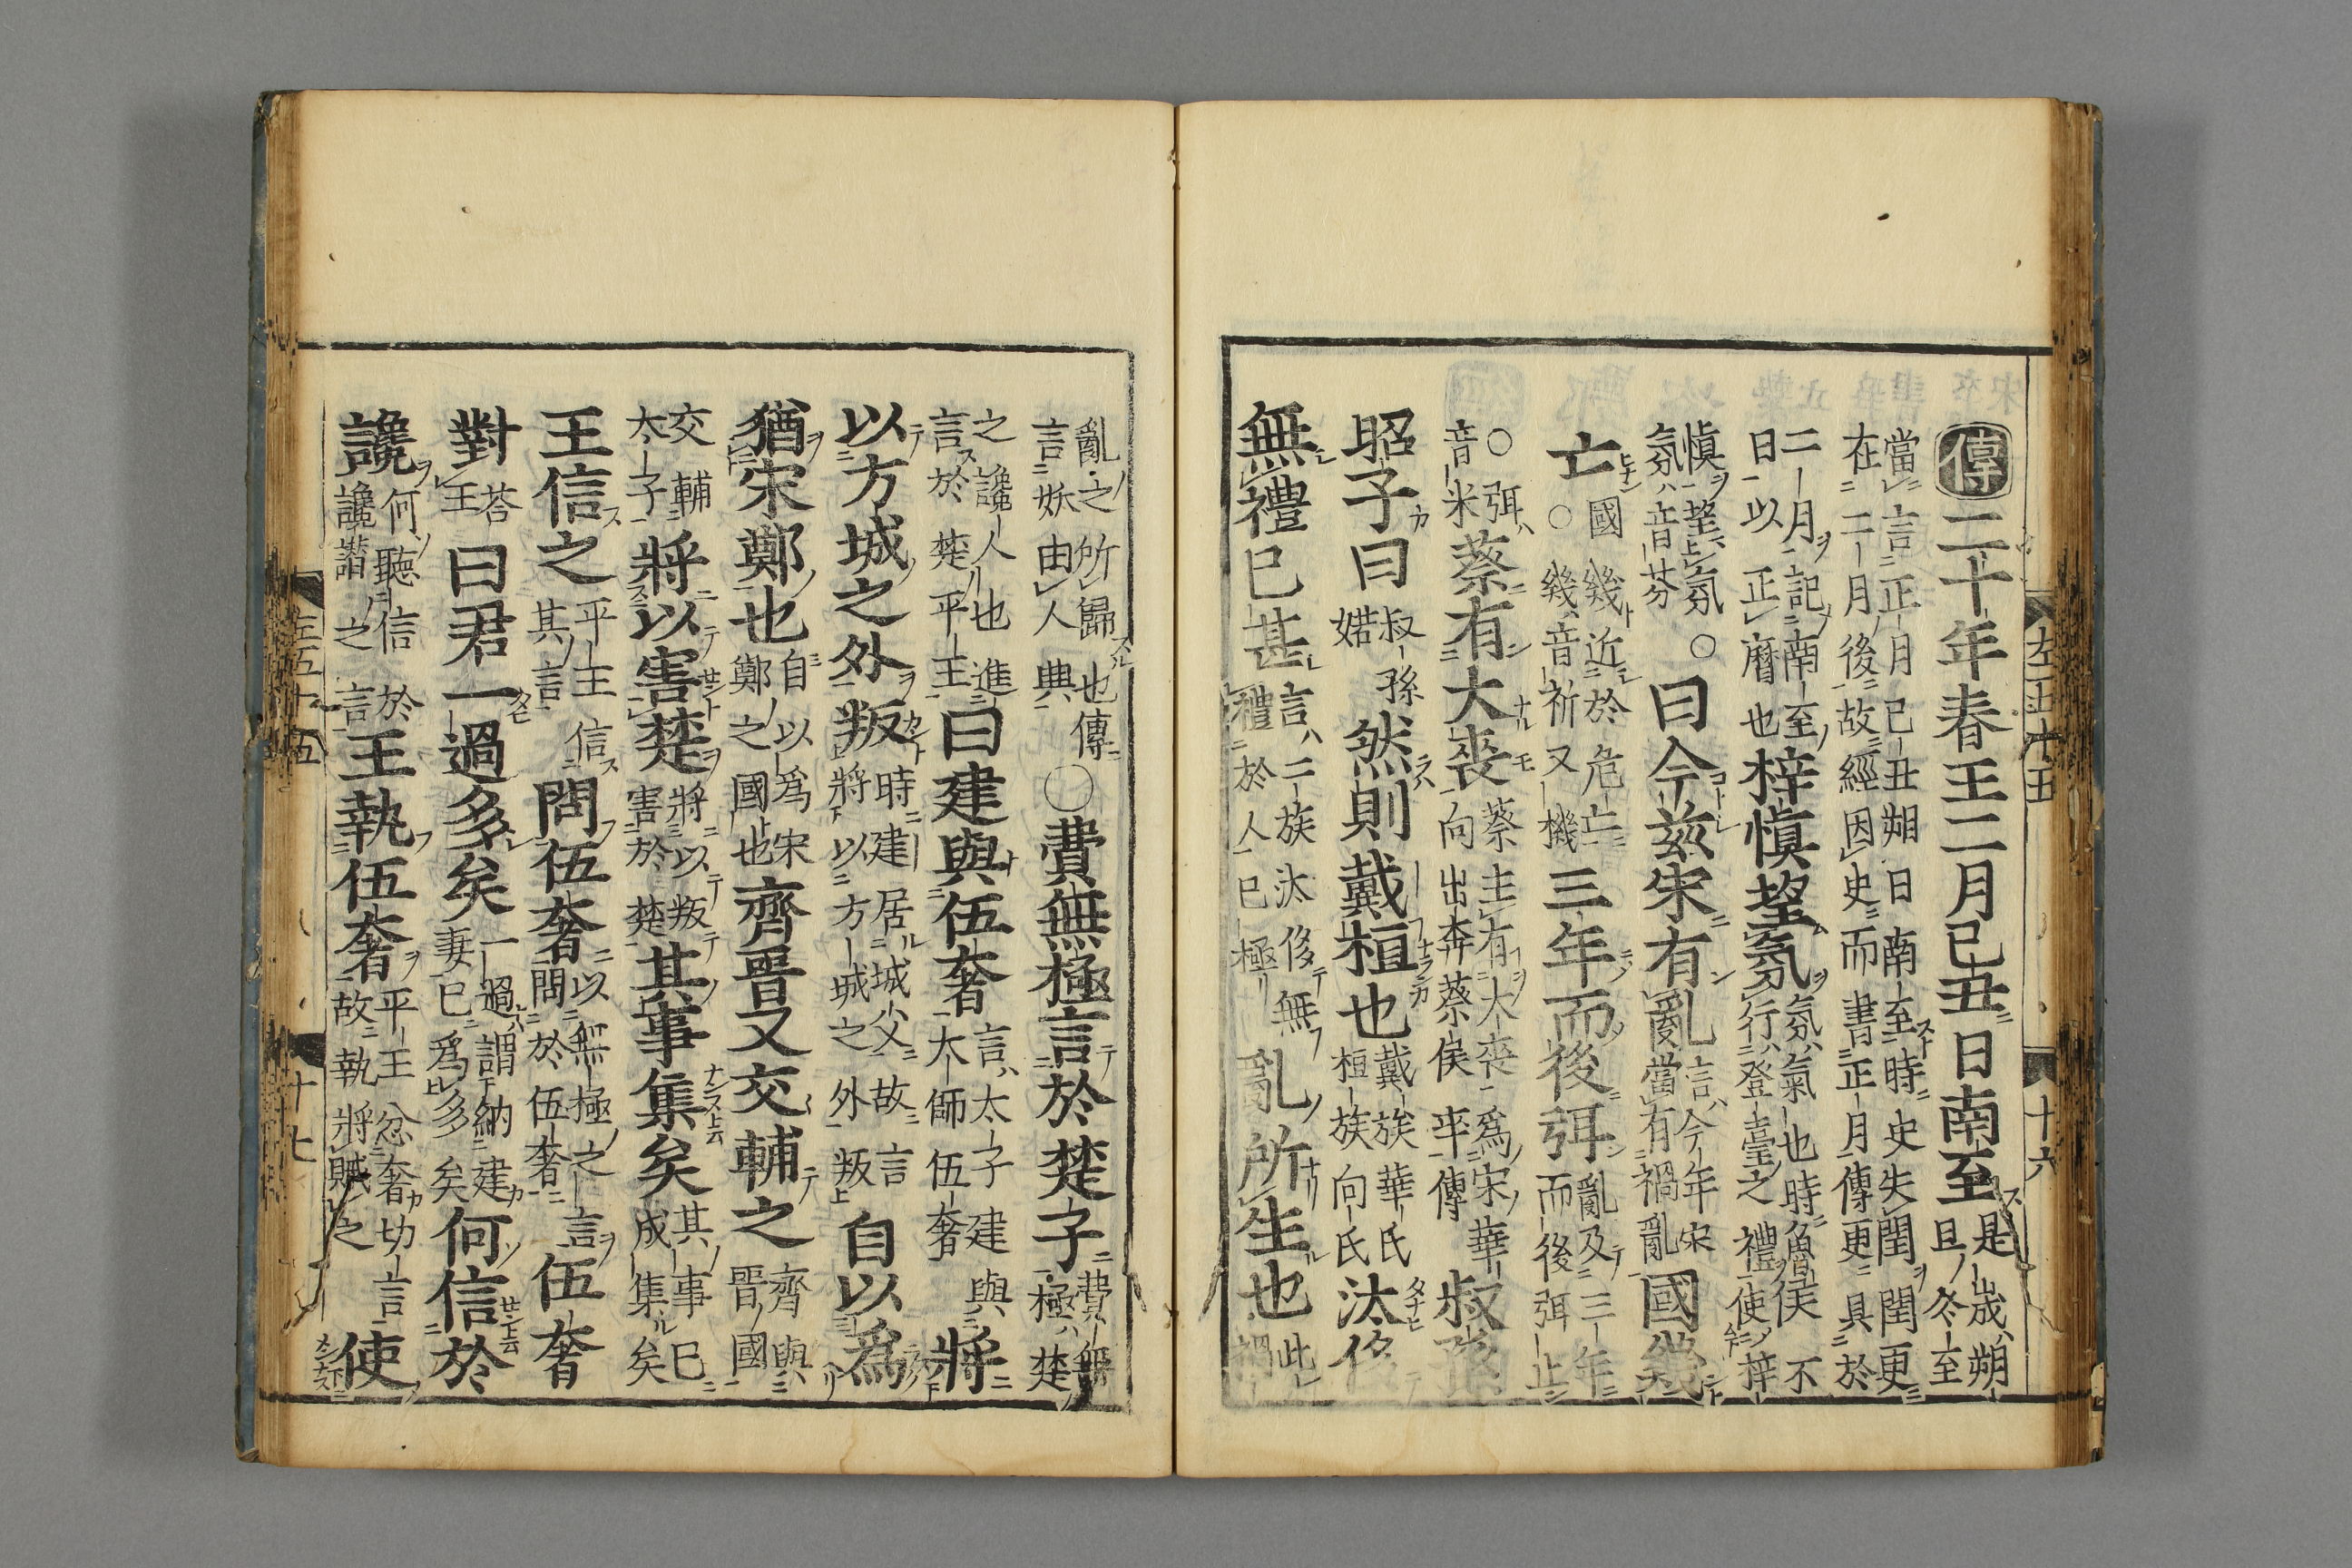 左五十五 十六
傳二十年春王二月己丑日南至是歲朔旦冬至
當言正月己丑朔日南至時史失閏閏更在二月後故經因史而書正月傳更具於
二月記南至日以正曆也梓慎望氛氛氣也時魯侯不行登臺之禮使梓
慎望氛氛音芬○曰今茲宋有亂言今年宋當有禍亂國幾
亡國幾近於危亡○幾音祈又音機三年而後弭亂及三年而後弭止
○弭音米蔡有大喪蔡主有大喪爲宋華向出奔蔡侯卒傳叔孫
昭子曰叔孫婼然則戴桓也戴族華氏桓族向氏汰侈
無禮已甚言二族汰侈無禮於人已極亂所生也此禍
亂之所歸也傳言妖由人典○費無極言於楚子費無極楚
之讒人也進言於楚平王曰建與伍奢言太子建與太師伍奢將
以方城之外叛時建居城父故言將以方城之外叛自以爲
猶宋鄭也自以爲宋鄭之國也齊晉又交輔之齊與晉國
交輔太子將以害楚將以叛害於楚其事集矣其事已成集矣
王信之平王信其言問伍奢以無極之言問於伍奢伍奢
對荅王曰君一過多矣一過謂納建妻已爲多矣何信於
讒何聽信於讒譖之言王執伍奢平王忿奢切言故執將賊之使
左五十五 十七